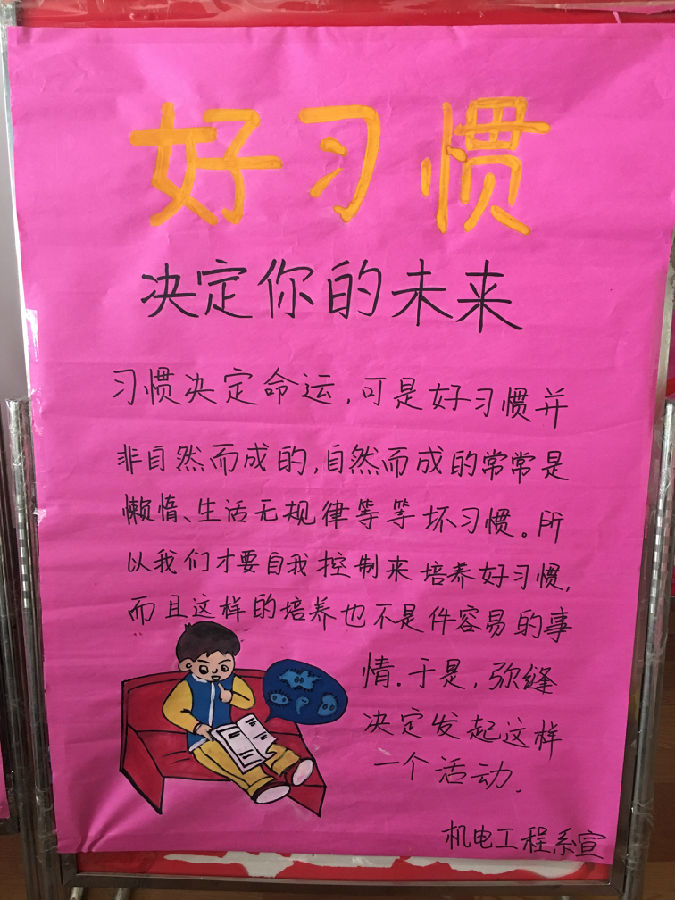 好习惯
决定你的未来
习惯决定命运,可是好习惯并
非自然而成的,自然而成的常常是
懒惰、生活无规律等等坏习惯。所
以我们才要自我控制来培养好习惯,
而且这样的培养也不是件容易的事
情.于是,弥缝
决定发起这样
一个活动.
机电工程系宣